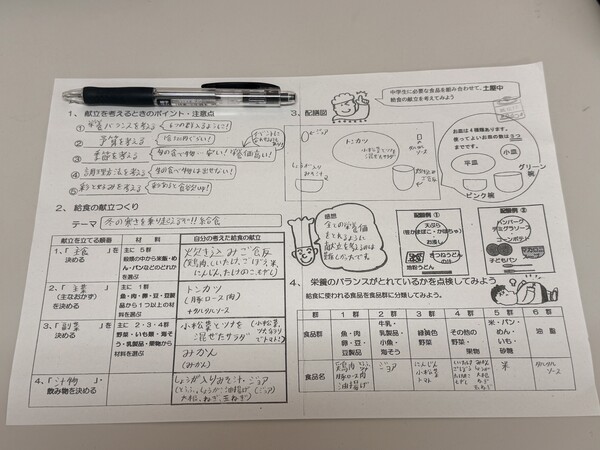 1、献立を考えるときのポイント・注意点
① 栄養バランスを考える
6つの群が入るように!
② 予算を考える
③ 季節を考える
旬の食べ物→安い!栄養価高い!
④ 調理方法を考える
生の食べ物は出せない!
⑤ 彩と好みを考える
2、給食の献立づくり
テーマ 冬の寒さを乗りこえろ!!給食
献立を立てる順番
材 料
自分の考えた給食の献立
1、「主食」を決める
主に 5群
穀類の中から米飯・めん・パンなどのどれかを選ぶ
炊き込みご飯
(鶏肉、しいたけ、ごぼう、米、にんじん、たけのこ、もやし)
2、「主菜」(主なおかず)を決める
主に 1群
魚・肉・卵・豆・豆製品から1つ以上の材料を選ぶ
トンカツ
(豚ロース肉)
+タルタルソース
3、「副菜」を決める
主に 2・3・4群
野菜・いも類・海そう・乳製品・果物から材料を選ぶ
小松菜とツナを混ぜたサラダ
(小松菜、ツナ、トマト)
みかん
(みかん)
4、「汁物」・飲み物を決める
しょうが入りみそ汁・ジョア
3、配膳図
中学生に必要な食品を組み合わせて、土屋中
給食の献立を考えてみよう
ジョア
トンカツ
小松菜とツナを混ぜたサラダ
タルタルソース
しょうが入りみそ汁
お皿は4種類あります。
使ってよいお皿の数は3つまでです。
平皿
小皿
グリーン碗
ピンク碗
感想
全ての栄養価をとれるように献立を考えるのは難しかったです。
配膳例①
天ぷら
(竹かまぼこ・かぼちゃ)
お浸し
きつねうどん
地粉うどん
配膳例②
ハンバーグ
デミグラソース
コーンポテト
マカロニ
子どもパン
4、栄養のバランスがとれているかを点検してみよう
給食に使われる食品を食品群に分類してみよう。
群 1 2 3 4 5 6
食品群
魚・肉・卵・豆・豆製品
牛乳・乳製品・小魚・海そう
緑黄色野菜
その他の野菜・果物
米・パン・めん・いも・砂糖
油 脂
食品名
鶏肉
豚ロース肉
油揚げ
ジョア
にんじん
小松菜
トマト
米
タルタルソース